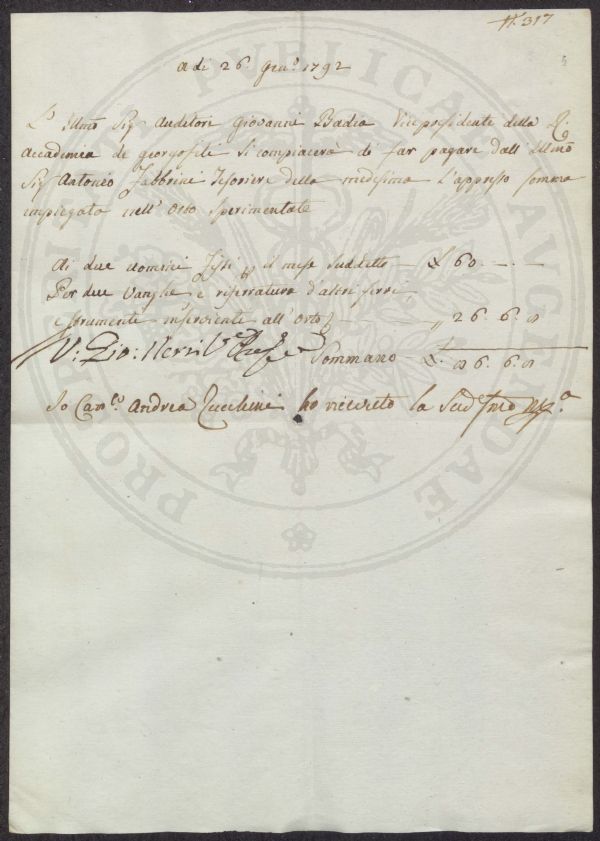 N.° 317
Adi 26. Gen.° 1792
L'Illmo Sig Auditore Giovanni Badia Vicepresidente della R.
Accademia de Georgofili si compiacerà di far pagare dall'Illmo
Sig Antonio Fabbrini Tesoriere della medesima l'appresso somma
impiegata nell'Orto sperimentale
Ai due uomini fissi il mese suddetto £ 60. - . -
Per due Vanghe e riferratura d'altri ferri,
e strumenti inservienti all'Orto ,, 26. 6. 8
V: Gio: Neri Sommano £. 86. 6. 8
Io Can.co Andrea Zucchini ho ricevuto la Sud
PROSPERITATI PUBLICAE AUGENDAE